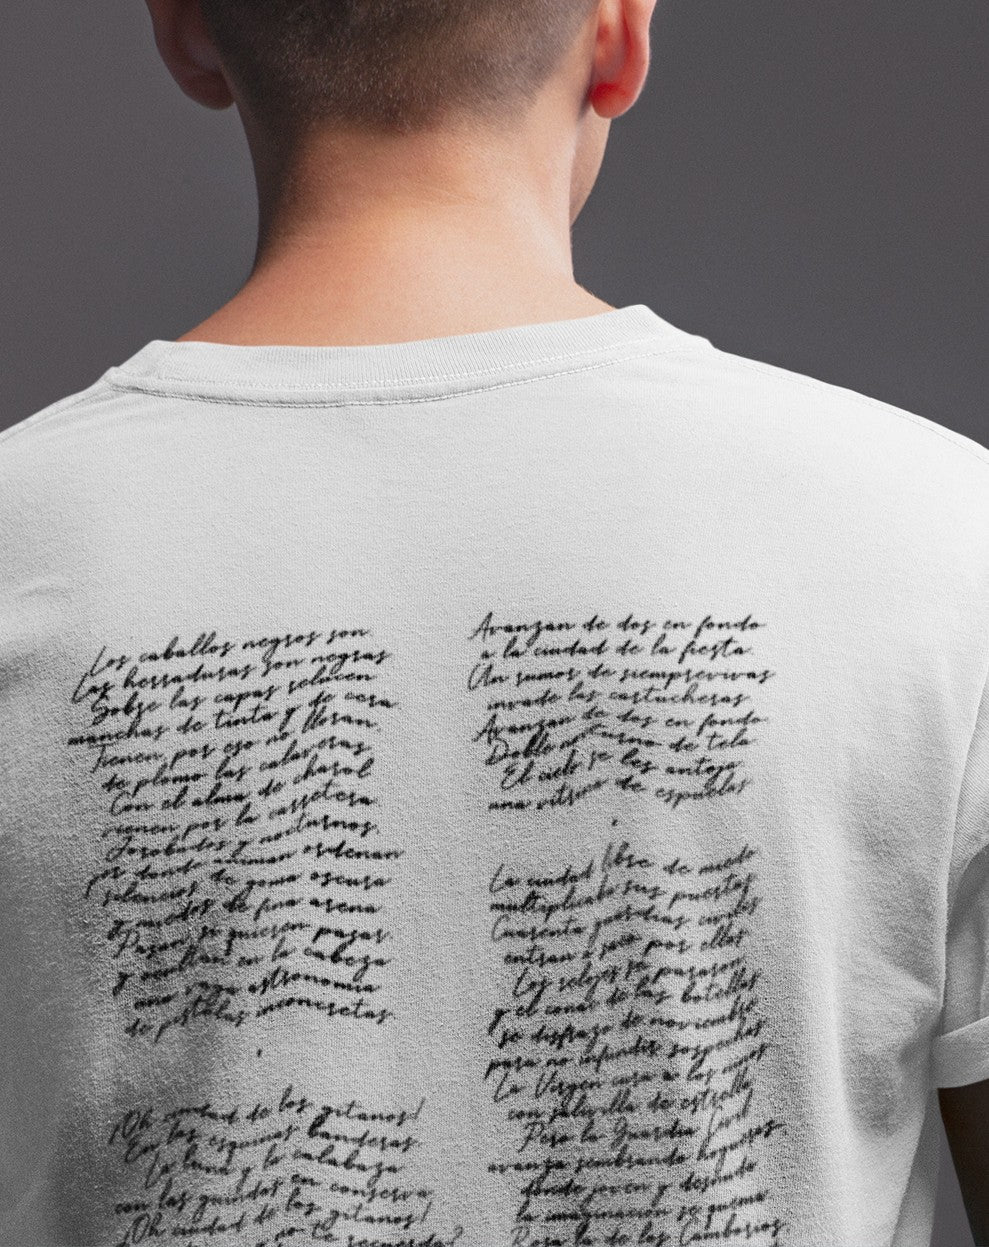 Los caballos negros son.
Las herraduras son negras
Sobre las capas relucen
manchas de tinta y de cera.
Tienen, por eso no lloran,
de plomo las calaveras.
Con el alma de charol
vienen por la carretera.
Jorobados y nocturnos,
por donde animan ordenan
silencios de goma oscura
y miedos de fina arena.
Pasan, si quieren pasar,
y ocultan en la cabeza
una vaga astronomía
de pistolas inconcretas.
¡Oh ciudad de los gitanos!
En las esquinas banderas.
La luna y la calabaza
con las guindas en conserva.
¡Oh ciudad de los gitanos!
y no te recuerda?
Avanzan de dos en fondo
a la ciudad de la fiesta.
Un rumor de siemprevivas
invade las cartucheras.
Avanzan de dos en fondo.
Doble nocturno de tela.
El cielo se les antoja
una vitrina de espuelas.
La ciudad libre de miedo
multiplicaba sus puertas.
Cuarenta guardias civiles
entran a saco por ellas.
Los relojes se pararon,
y el coñac de las botellas
se disfrazó de noviembre
para no infundir sospechas.
La Virgen cura a los niños
con salivilla de estrella.
Pero la Guardia Civil
avanza sembrando hogueras,
donde joven y desnuda
la imaginación se quema.
Rosa la de los Camborios,